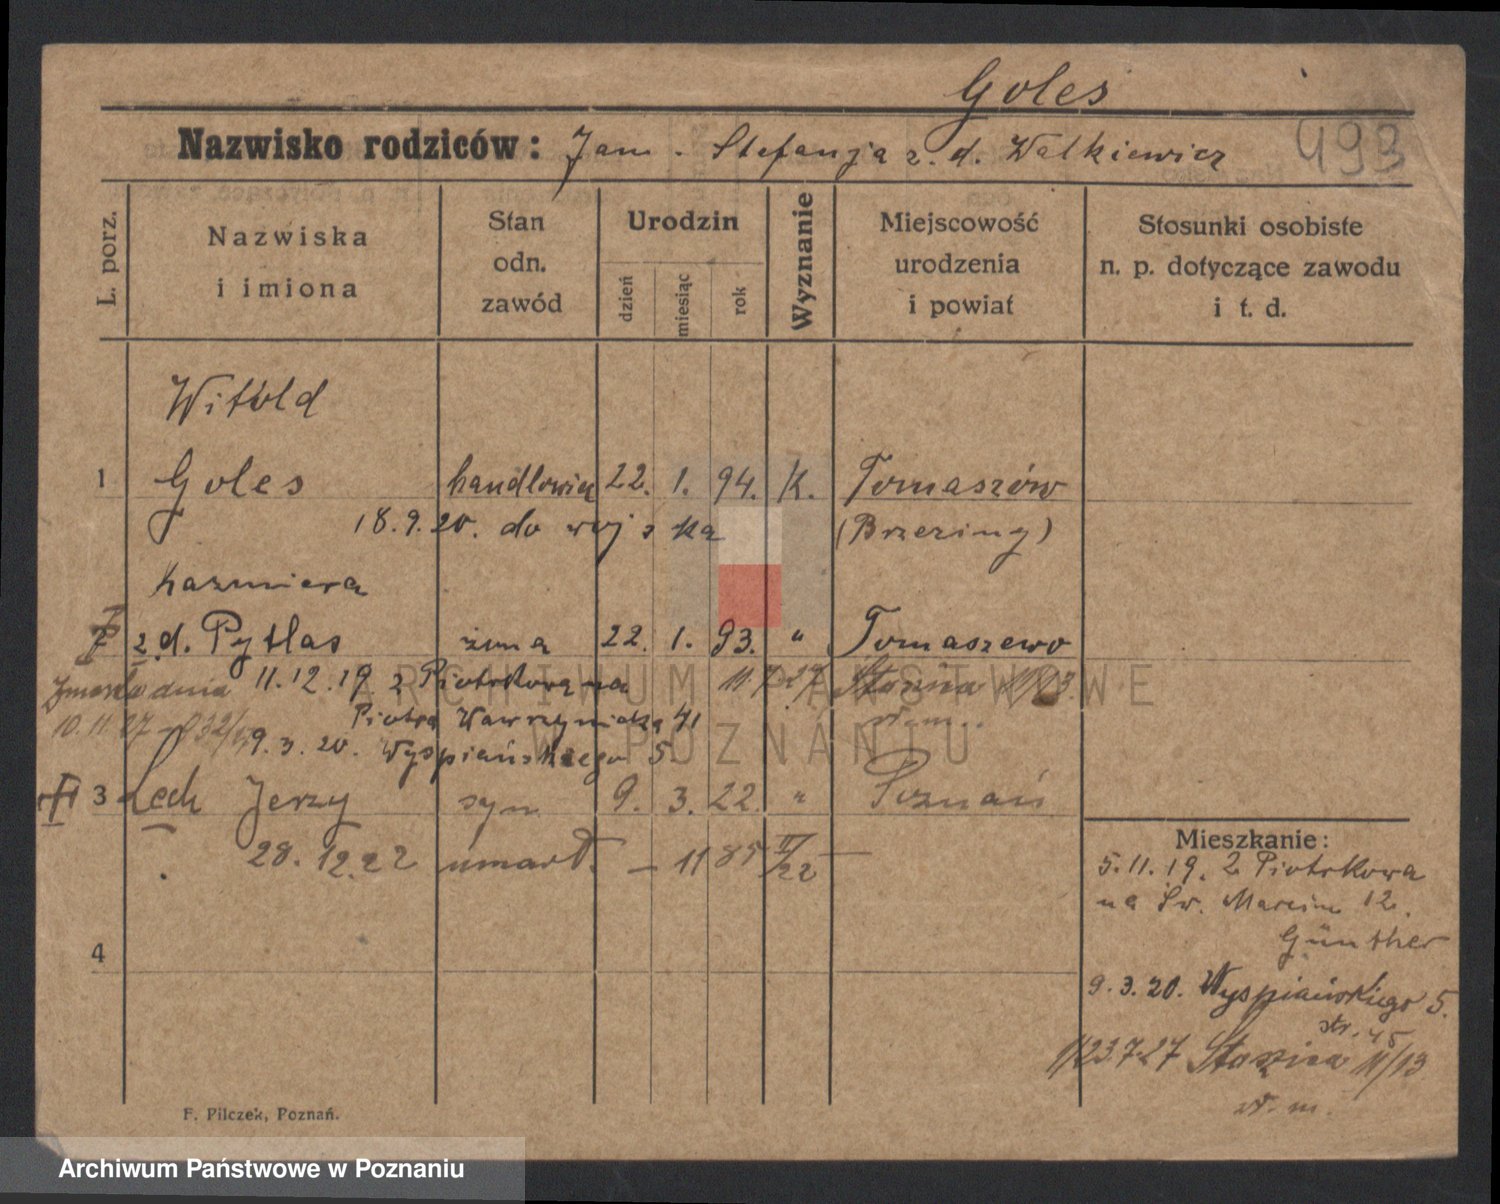 Goles
Nazwisko rodziców: Jan - Stefanja z. d. Walkiewicz 493
L. porz.
Nazwiska
i imiona
Stan
odn.
zawód
Urodzin
dzień
miesiąc
rok
Wyznanie
Miejscowość
urodzenia
i powiat
Stosunki osobiste
n. p. dotyczące zawodu
i t. d.
Witold
1 Goles handlowiec 22. 1. 94. K. Tomaszów
18.9.20. do wojska (Brzeziny)
Kazmiera
z d. Pytlas żona 22. 1. 93. " Tomaszewo
Zmarła dnia 11.12.19 z Piotrkowa na
10.11.27 Piotra Wawrzyniaka 41
9.3.20. Wyspiańskiego 5
3 Lech Jerzy syn 9. 3. 22. " Poznań
28.12.22 umarł. - 11 85 II/22
4
Mieszkanie:
5.11.19. z Piotrkowa
na Św. Marcin 12.
Günther
9.3.20. Wyspiańskiego 5.
str. 45
23.7.27 Staszica 11/13
w. m.
F. Pilczek, Poznań.
ARCHIWUM PAŃSTWOWE
W POZNANIU
Archiwum Państwowe w Poznaniu